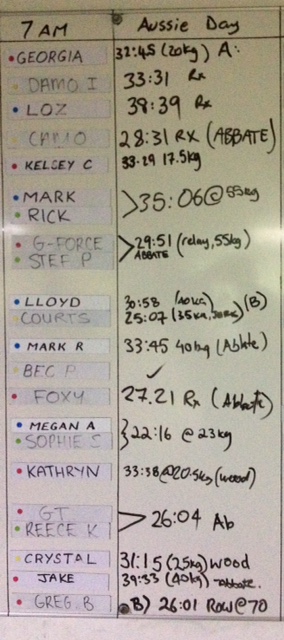 7 AM Aussie Day
GEORGIA 32:45 (20kg) A:
DAMO I 33:31 Rx
LOZ 38:39 Rx
CAMO 28:31 RX (ABBATE)
KELSEY C 33:29 17.5kg
MARK
RICK
>35:06@55kg
G-FORCE
STEF P
>29:51 (relay, 55kg)
ABBATE
LLOYD 30:58 (40kg)
COURTS 25:07 (35kg,
(B)
MARK R 33:45 40kg (Abbate)
BEC P ✓
FOXY 27.21 Rx (Abbate)
MEGAN A
SOPHIE S
}22:16 @ 23kg
KATHRYN 33:38@20.5kg (wood)
GT
REECE K
> 26:04 Ab
CRYSTAL 31:15 (25kg) wood
JAKE 39:33 (40kg) Abbate.
GREG. B B) 26:01 Row@70